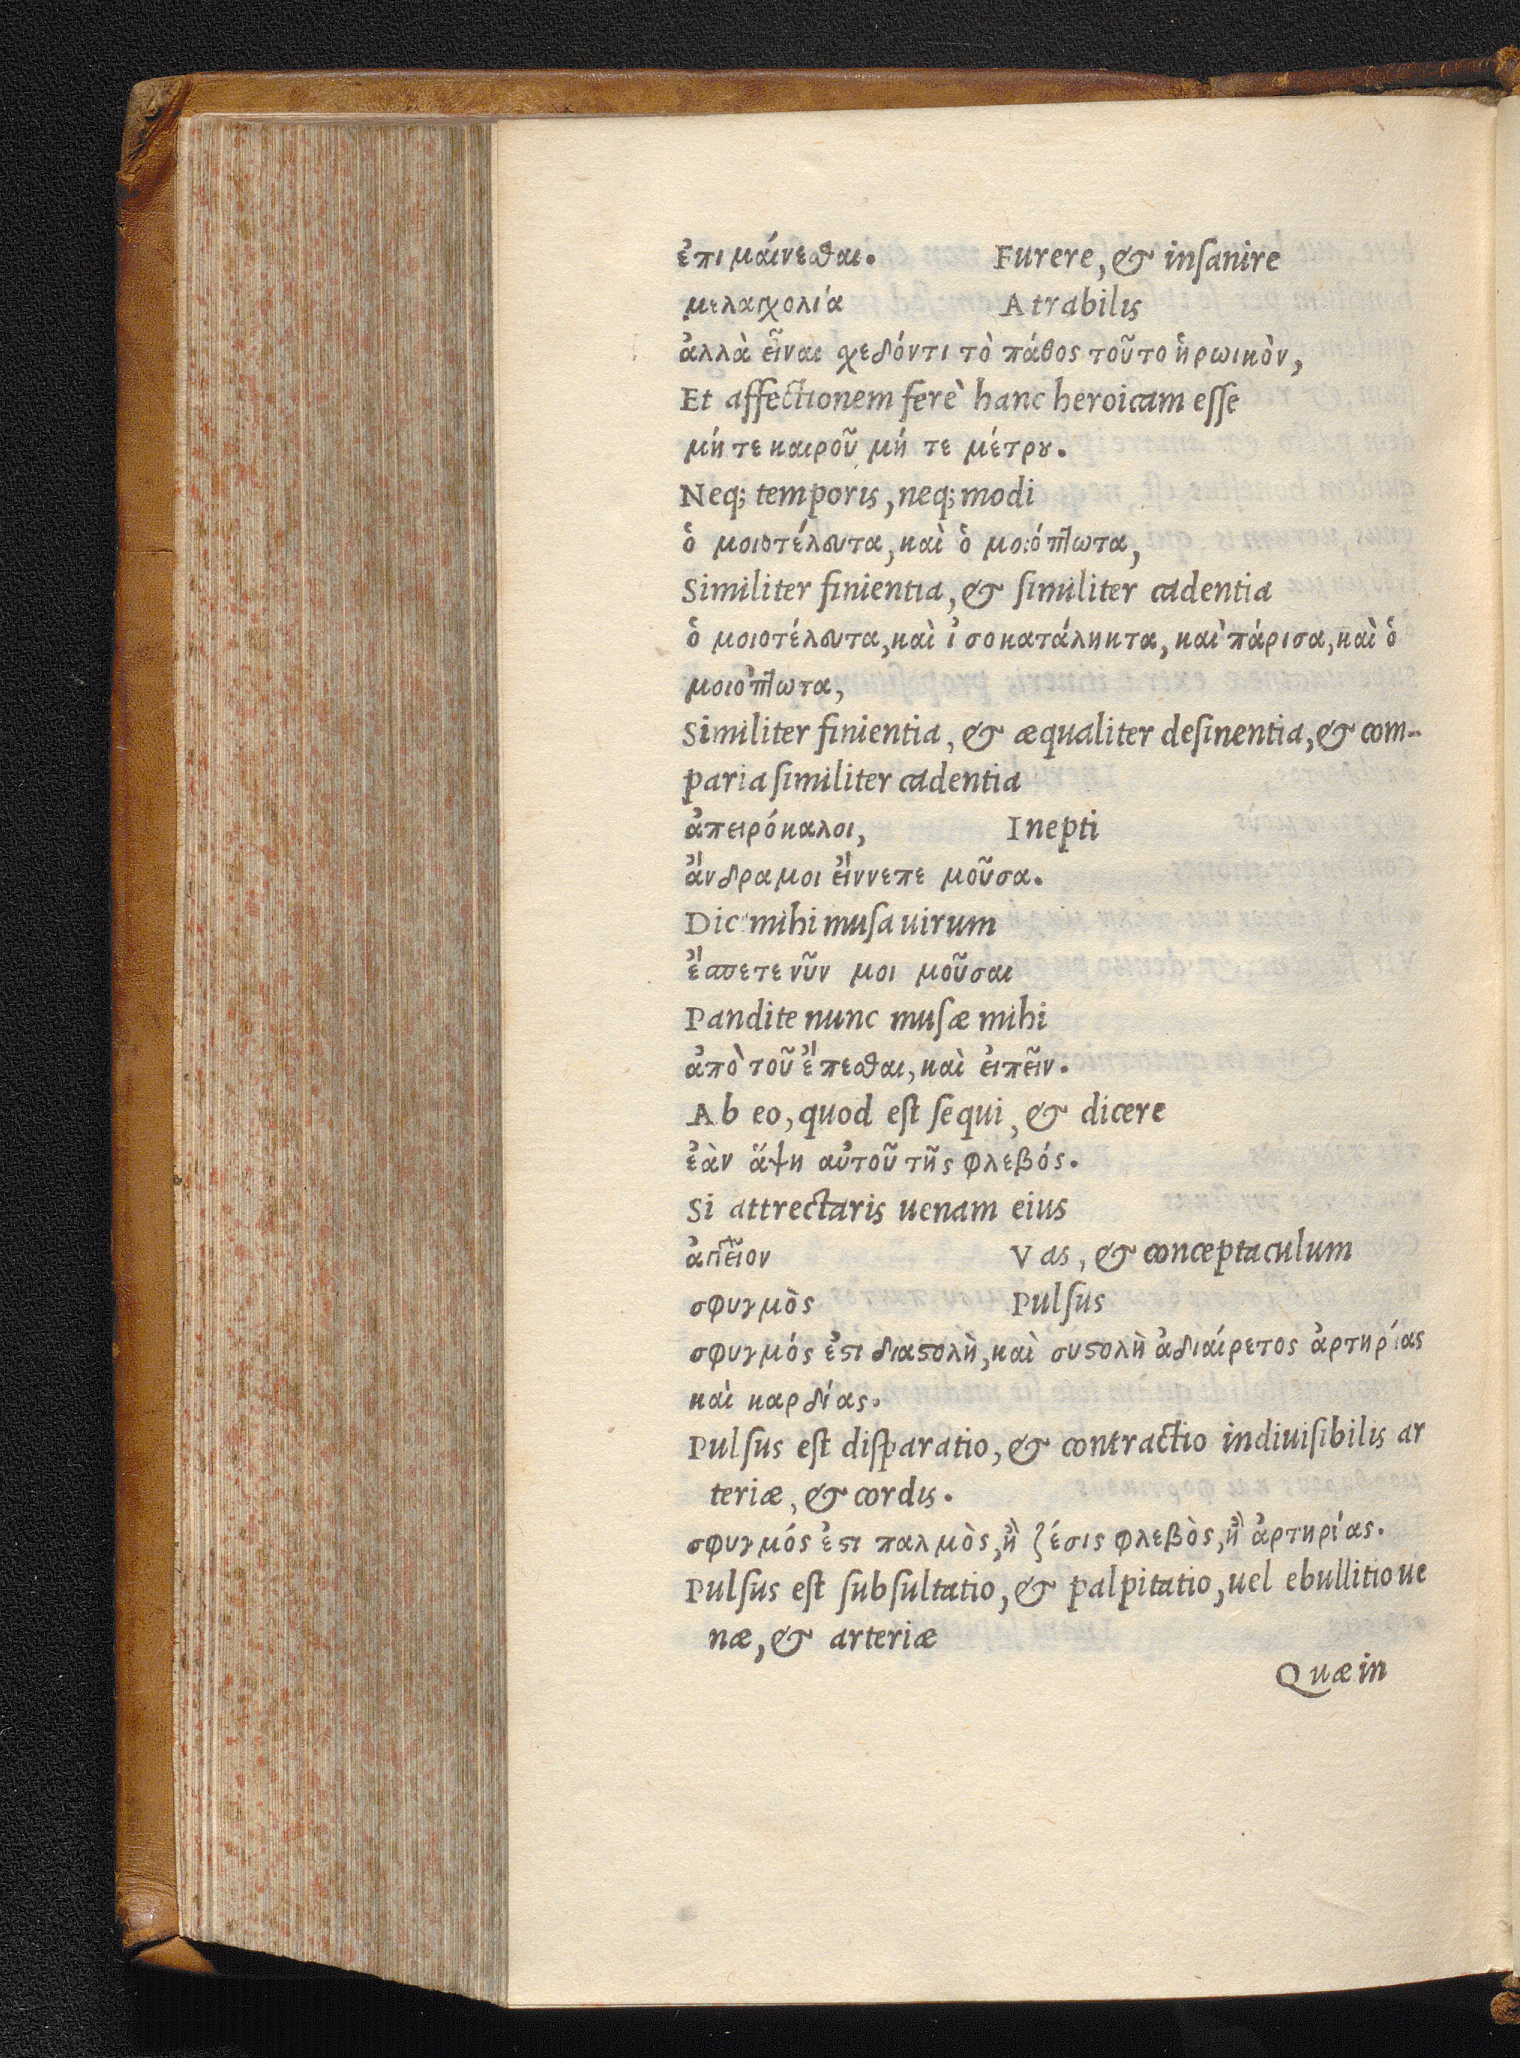 ἐπι μαίνεσθαι. Furere, & insanire
μελαγχολία Atrabilis
ἀλλὰ εἶναι σχεδόντι τὸ πάθος τοῦτο ἡρωικὸν,
Et affectionem ferè hanc heroicam esse
μή τε καιροῦ μή τε μέτρου.
Neq; temporis, neq; modi
ὁ μοιοτέλευτα, καὶ ὁ μοιόπτωτα,
Similiter finientia, & similiter cadentia
ὁ μοιοτέλευτα, καὶ ἰ σοκατάληκτα, καὶ πάρισα, καὶ ὁ
μοιοπτωτα,
Similiter finientia, & æqualiter desinentia, & com-
paria similiter cadentia
ἀπειρόκαλοι, Inepti
ἄνδρα μοι ἔιννεπε μοῦσα.
Dic mihi musa uirum
ἔσπετε νῦν μοι μοῦσαι
Pandite nunc musæ mihi
ἀπὸ τοῦ ἔπεσθαι, καὶ ἐιπεῖν.
Ab eo, quod est sequi, & dicere
ἐὰν ἅψη αὐτοῦ τῆς φλεβός.
Si attrectaris uenam eius
Vas, & conceptaculum
σφυγμὸς Pulsus
σφυγμός ἐστι διαστολὴ, καὶ συστολὴ ἀδιαίρετος ἀρτηρίας
καὶ καρδίας.
Pulsus est disparatio, & contractio indiuisibilis ar
teriæ, & cordis.
σφυγμός ἐστι παλμὸς, ἢ ζέσις φλεβὸς, ἢ ἀρτηρίας.
Pulsus est subsultatio, & palpitatio, uel ebullitio ue
næ, & arteriæ
Quæ in